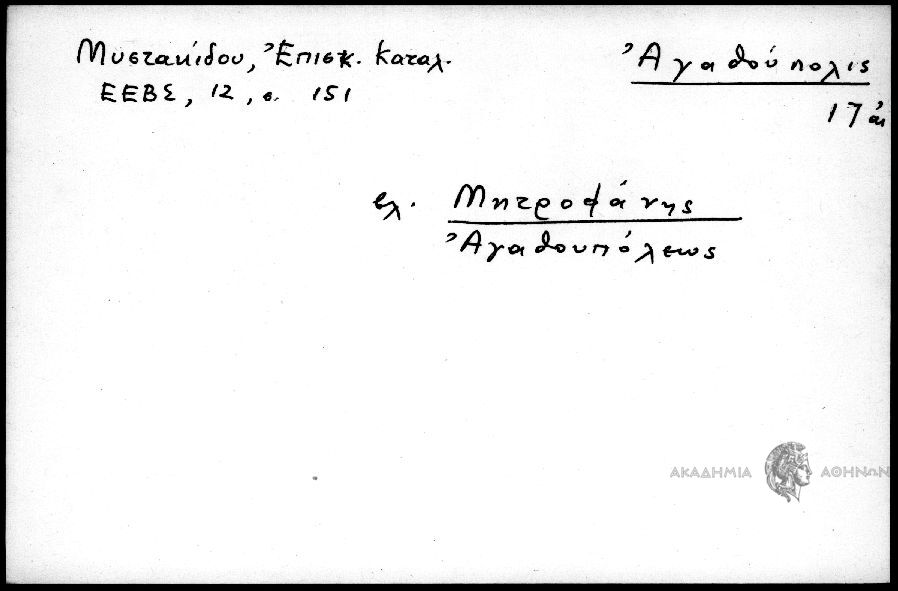 Μυστακίδου, Ἐπισκ. Καταλ.
ΕΕΒΣ, 12, σ. 151
Ἀγαθούπολις
17 αι
βλ. Μητροφάνης
Ἀγαθουπόλεως
ΑΚΑΔΗΜΙΑ ΑΘΗΝΩΝ